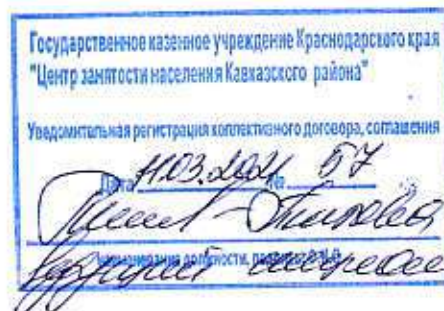 Государственное казенное учреждение Краснодарского края
"Центр занятости населения Кавказского района"
Уведомительная регистрация коллективного договора, соглашения
11.03.2021 № 57
наименование должности, подпись, Ф.И.О.